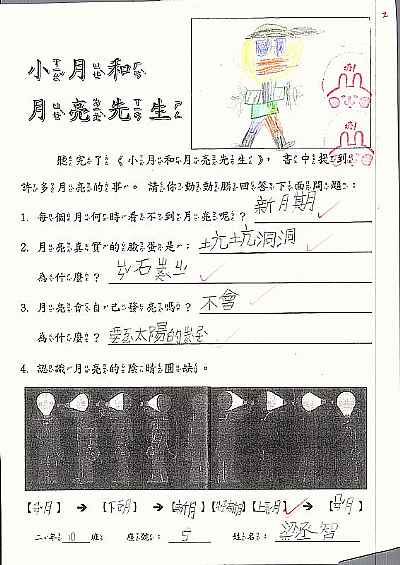 2
小月和
月亮先生
聽完了《小月和月亮先生》，書中提到
許多月亮的事。請你動動腦回答下面問題：
1. 每個月何時看不到月亮呢？新月期
2. 月亮真實的臉蛋是：坑坑洞洞
為什麼？
3. 月亮會自己發亮嗎？不會
為什麼？太陽的
4. 認識月亮的陰晴圓缺。
【月】→【下弦月】→【新月】【月】【上弦月】→【月】
二年10班 座號：5 姓名：梁丞智